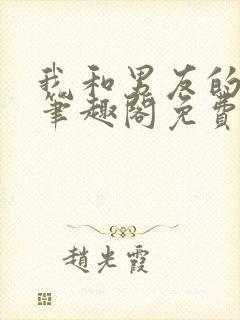 我和男友的
笔趣阁免费
趙光霞